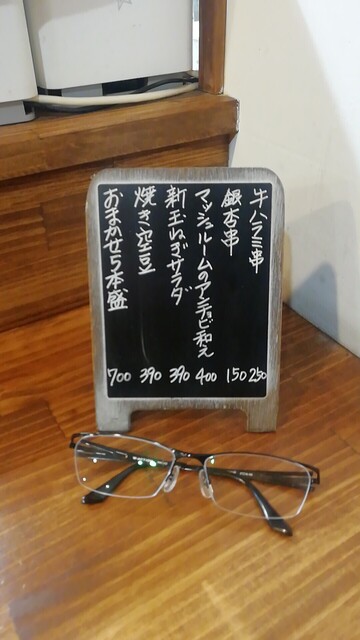 牛ハラミ串 250
銀杏串 150
マッシュルームのアンチョビ和え 400
新玉ねぎサラダ 390
焼き空豆 390
おまかせ5本盛 700